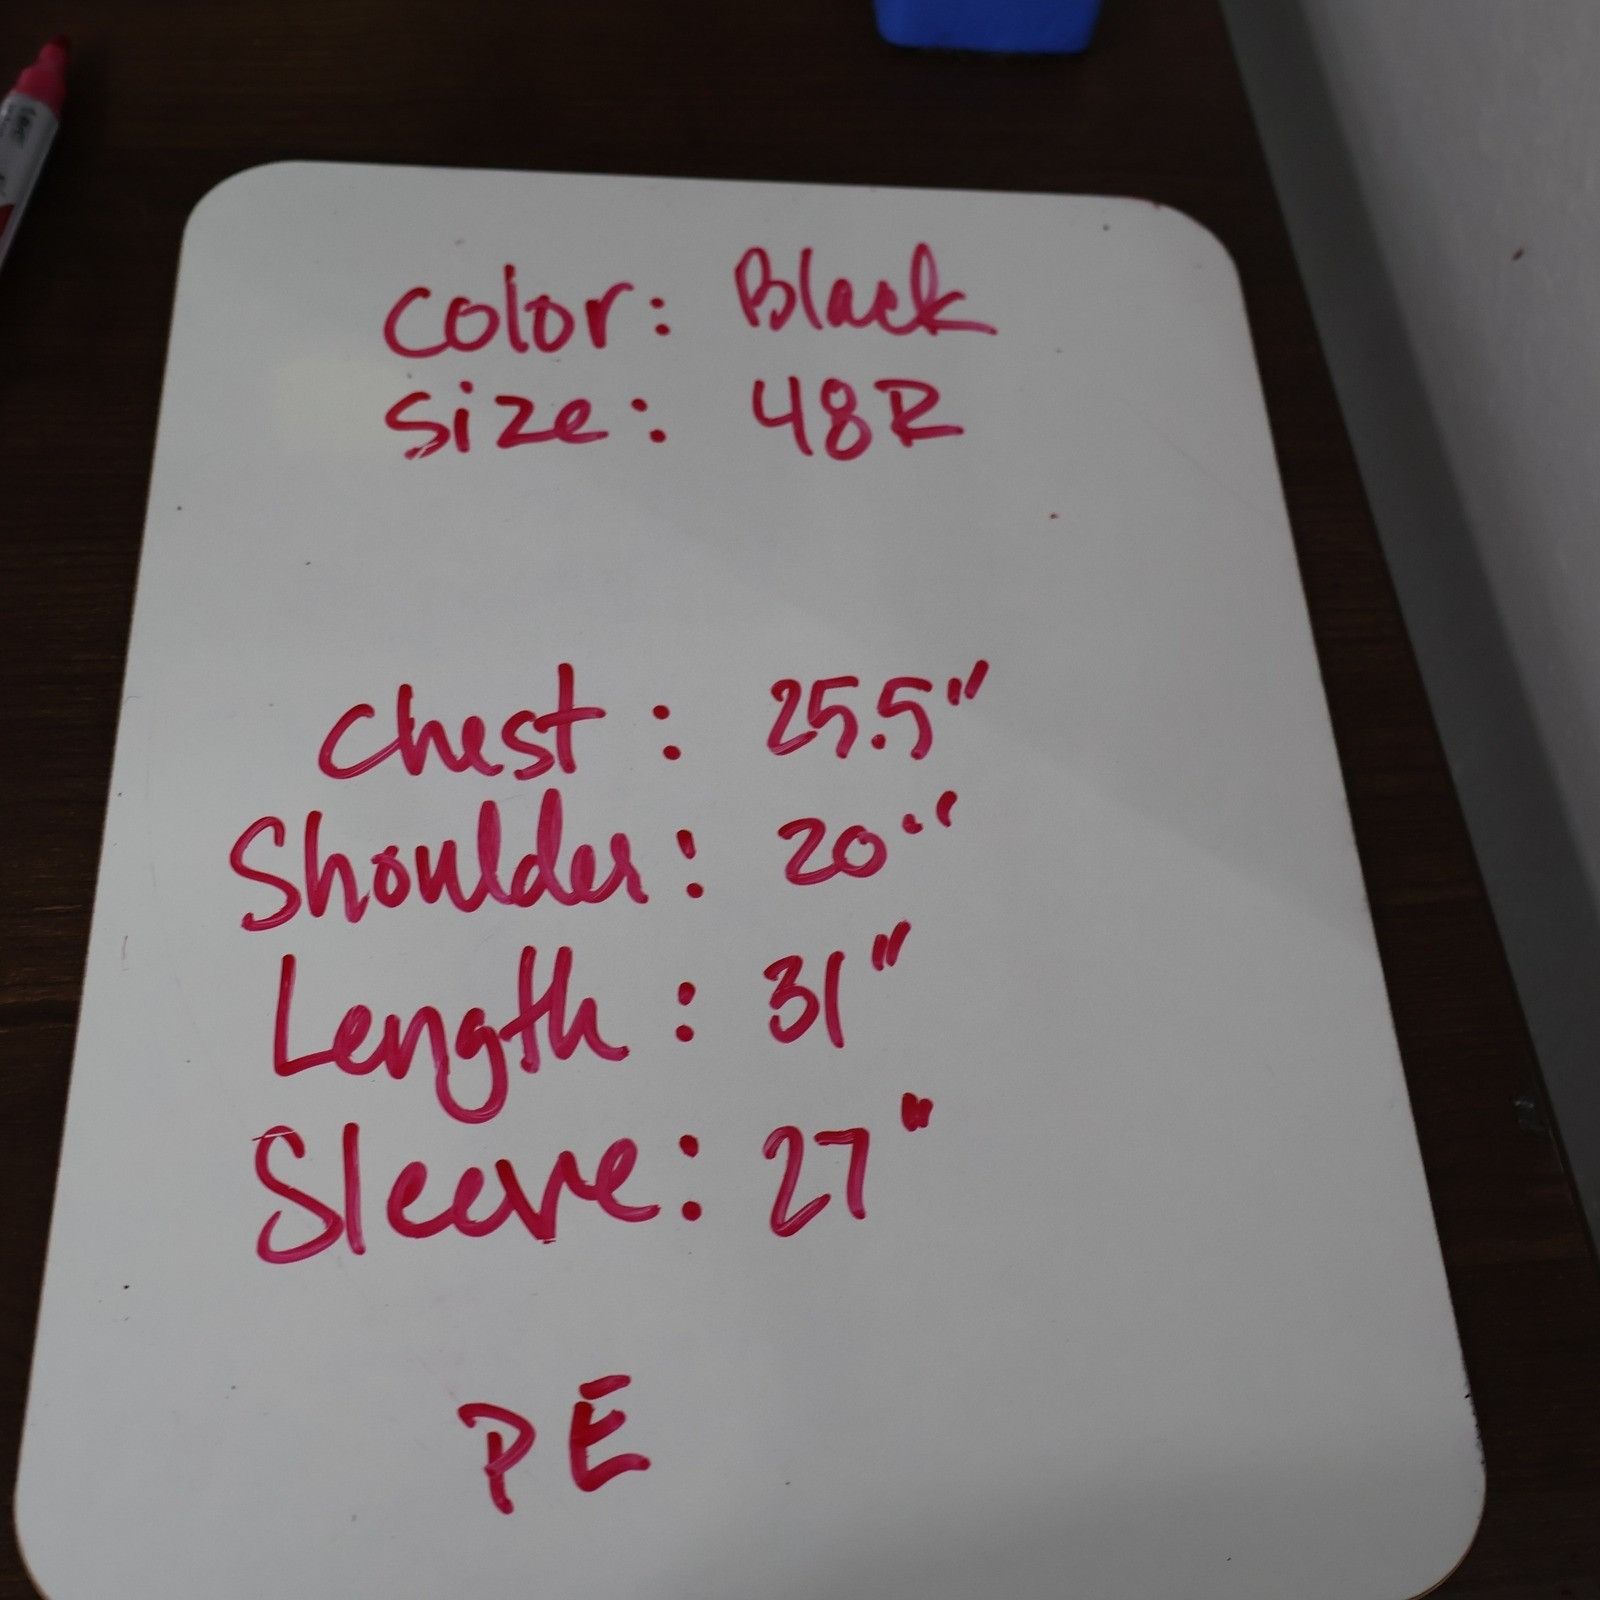 Color: Black
Size: 48R
Chest: 25.5"
Shoulder: 20"
Length: 31"
Sleeve: 27"
PE